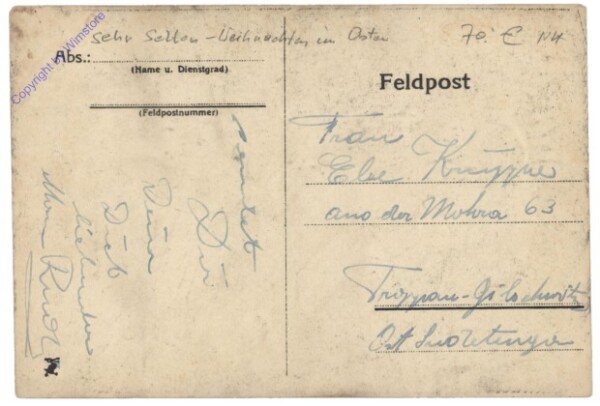 sehr selten - Weihnachten im Osten
70.- € NH
Abs.:
(Name u. Dienstgrad)
(Feldpostnummer)
Feldpost
Frau
Else
an der Mohra 63
Troppau-
Ost Sudetengau
sendet
Dir
Dein
Dich
liebender
Copyright by Wimstore